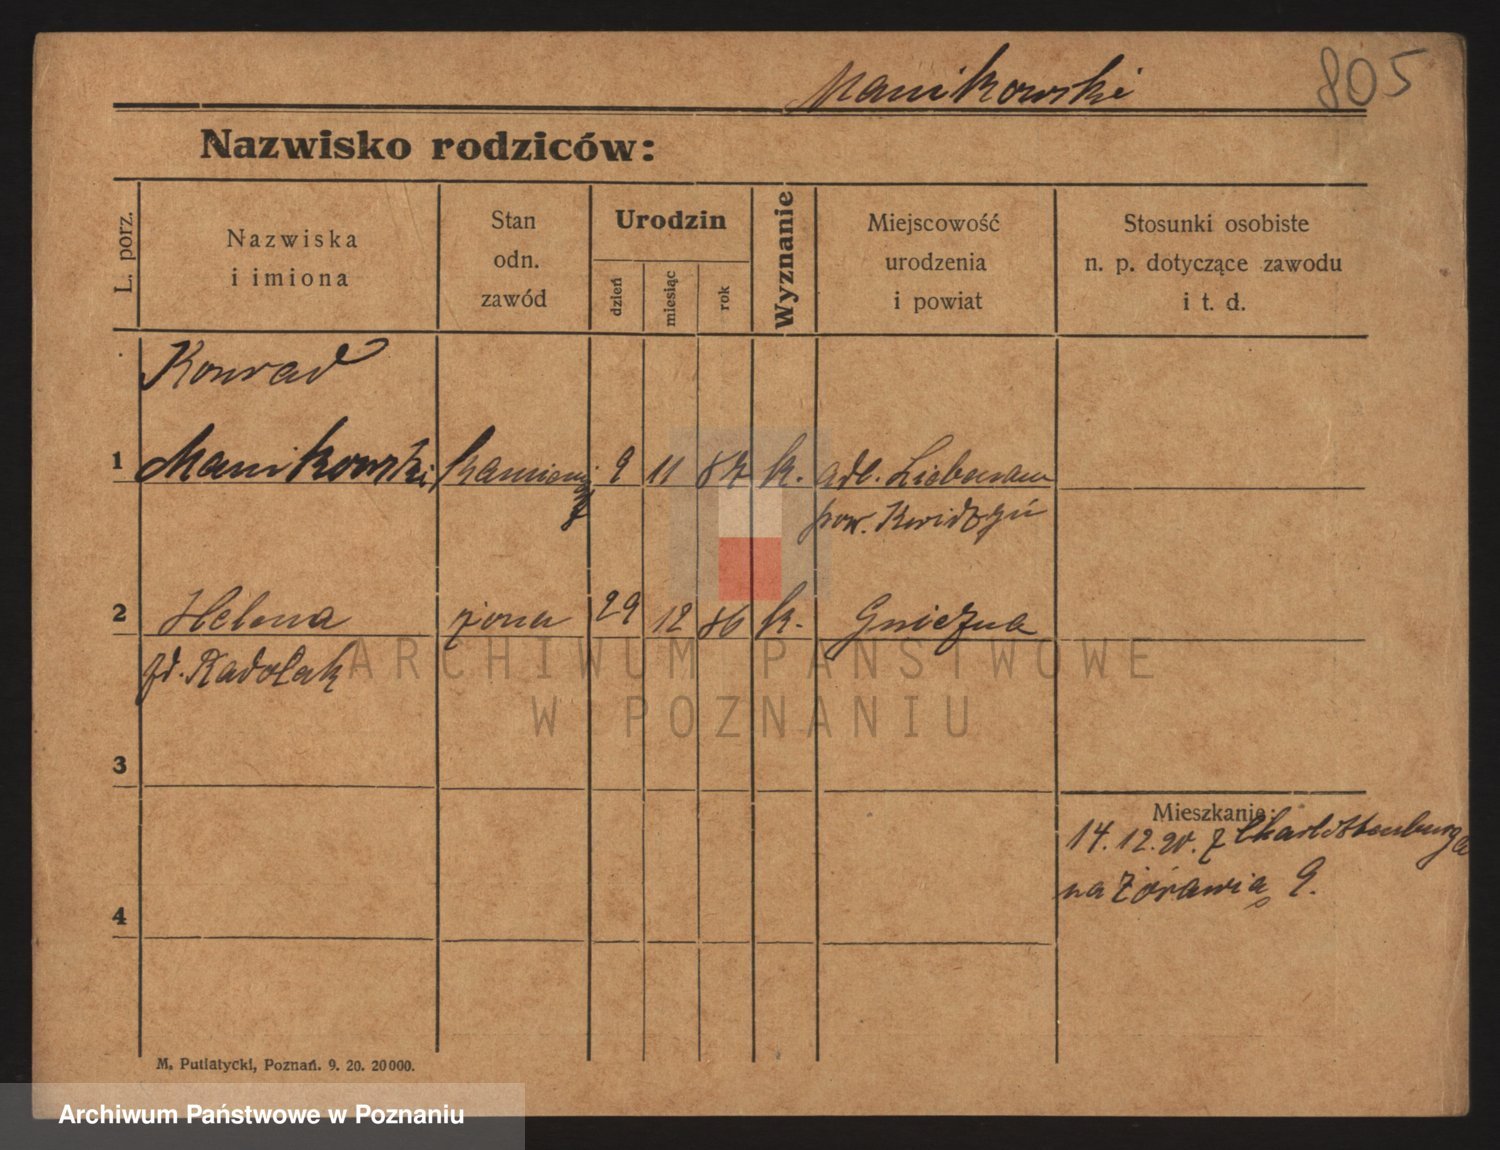 Manikowski
805
Nazwisko rodziców:
L. porz.
Nazwiska
i imiona
Stan
odn.
zawód
Urodzin
dzień
miesiąc
rok
Wyznanie
Miejscowość
urodzenia
i powiat
Stosunki osobiste
n. p. dotyczące zawodu
i t. d.
Konrad
1 Manikowski 9 11 k. adl. Liebenau
pow. Kwidzyń
2 Helena żona 29 12 86 k. Gniezna
zd. Radolak
3
Mieszkanie:
14. 12. 20. z Charlottenburga
na Żórawią 9.
4
M. Putiatycki, Poznań. 9. 20. 20000.
ARCHIWUM PAŃSTWOWE
W POZNANIU
Archiwum Państwowe w Poznaniu